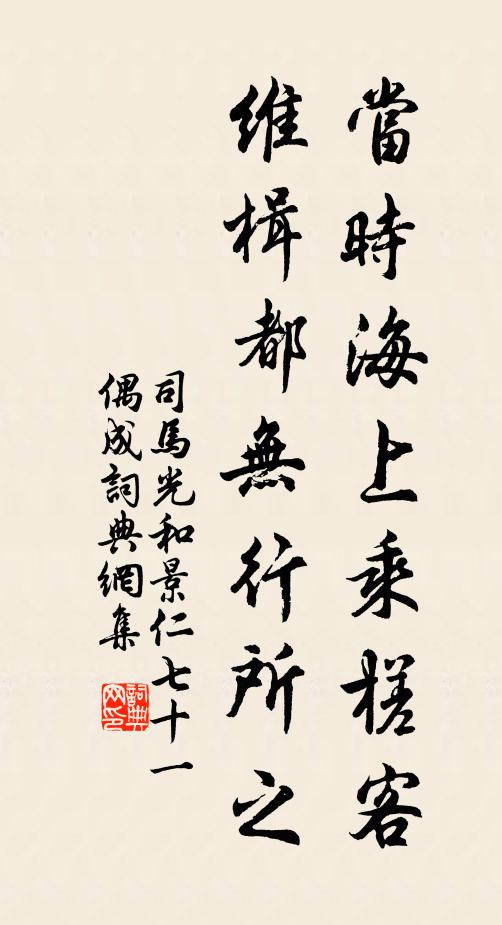 當時海上乘槎客
維楫都無行所之
司馬光和景仁七十一
偶成詞典網集
詞典网印